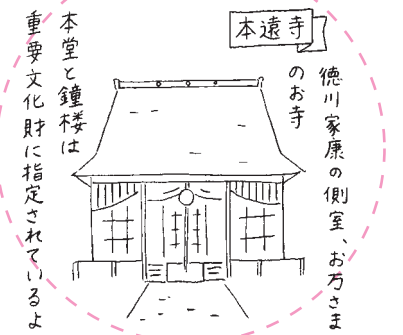 本遠寺
徳川家康の側室、お万さま
のお寺
本堂と鐘楼は
重要文化財に指定されているよ